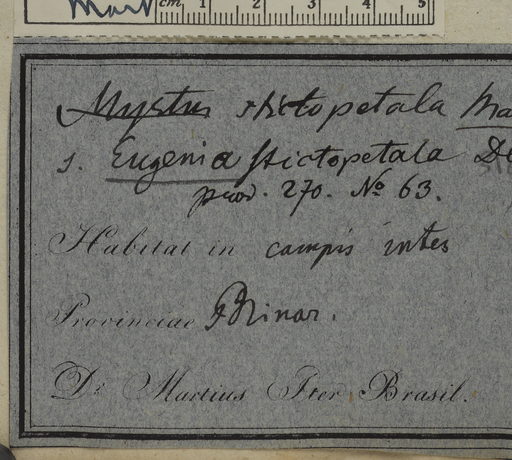 Mart
cm 1 2 3 4 5
Myrtus stictopetala Ma
s. Eugenia stictopetala D
prod. 270. No 63.
Habitat in campis inter
Provinciae Minar.
Dr. Martius Iter Brasil.